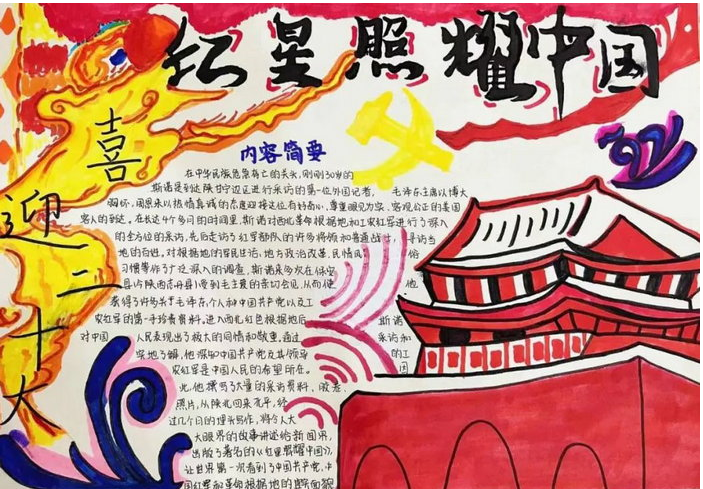 红星照耀中国
喜迎二十大
内容简要
在中华民族危急存亡的关头,刚刚30岁的
斯诺是到达陕甘宁边区进行采访的第一位外国记者, 毛泽东主席以博大
胸怀,周恩来以热情真诚的态度迎接这位有好奇心,尊重眼见为实,客观公正的美国
客人的到达。在长达4个多月的时间里,斯诺对西北革命根据地和工农红军进行了深入
的全方位的采访,先后走访了红军部队的许多将领和普通战士, 寻访当
地的百姓。对根据地的军民生活,地方政治改革,民情风 俗
习惯等作了广泛深入的调查。斯诺来多次在保安
县(今陕西志丹县)受到毛主席的亲切会见,从而使 他
获得了许多关于毛泽东个人和中国共产党以及工
农红军的第一手珍贵资料。进入西北红色根据地后 斯诺
对中国 人民表现出了极大的同情和敬重,通过 采访和
实地了解,他深知中国共产党及其领导 的工
农红军是中国人民的希望所在。 农
此,他撰写了大量的采访资料,
照片,从陕北回来
过几个月的埋头写作,将令人大
大眼界的故事讲述给新闻界,
出版了著名的《红星照耀中国》,
让世界第一次看到了中国共产党,中
国红军和革命根据地的真实面貌